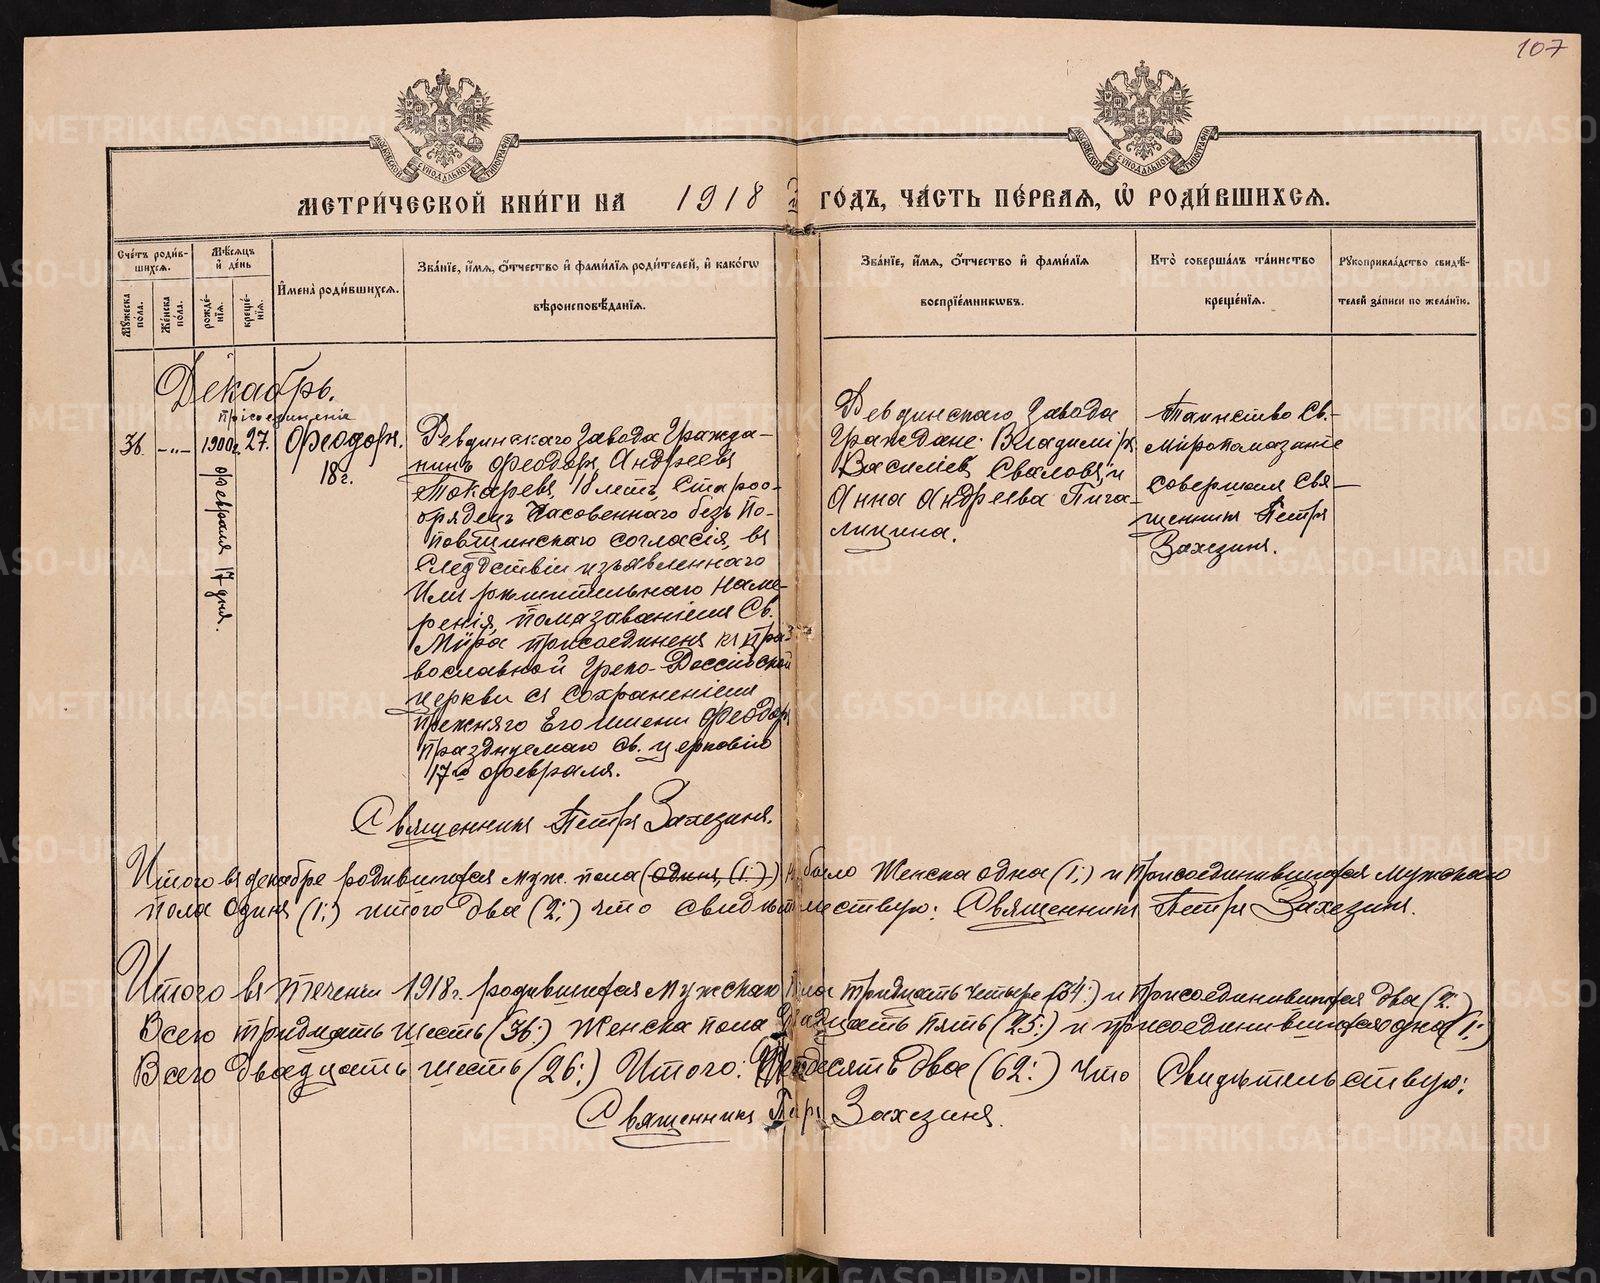 107
МЕТРИ́ЧЕСКОЙ КНИ́ГИ НА 1918 й ГО́ДЪ, ЧА́СТЬ ПЕ́РВАѦ, Ѡ҆ РОДИ́ВШИХСѦ.
Сче́тъ роди́в-
шихсѧ.
Мꙋ́жеска по́ла.
Же́нска по́ла.
Мѣ́сѧцъ и҆ де́нь
рожде́-
нїѧ.
креще́-
нїѧ.
И҆мена̀ роди́вшихсѧ.
Зва́нїе, и҆́мѧ, ѻ҆́тчество и҆ фами́лїѧ роди́телей, и҆ како́гѡ
вѣроисповѣ́данїѧ.
Зва́нїе, и҆́мѧ, ѻ҆́тчество и҆ фами́лїѧ
воспрїе́мникѡвъ.
Кто̀ соверша́лъ та́инство
креще́нїѧ.
Рꙋкоприкла́дство свидѣ́-
телей за́писи по жела́нїю.
Декабрь.
присоединенiе
36.
-"-
1900г.
февраля 17 дня.
27.
Феодоръ.
18 г.
Ревдинскаго Завода Гражда-
нинъ Феодоръ Андреевъ
Токаревъ, 18 летъ, старо­о-
брядецъ Часовеннаго безъ по-
повщинскаго согласiя, въ
следствiи изъявленнаго
Им решительнаго наме-
ренiя, помазанiемъ Св.
Мѵра присоединенъ къ пра-
вославной Греко-Россiйской
церкви съ сохраненiем
прежняго Его имени Феодор
празднуемаго св. церковiю
17го февраля.
Священникъ Петръ Захезинъ.
Ревдинскаго Завода
Граждане: Владимiръ
Василiевъ Сваловъ, и
Анна Андреева Пига-
лицина.
Таинство Св.
Мѵропомазанiе
совершал Свя-
щенникъ Петръ
Захезинъ.
Итого въ декабре родившихся муж. пола (один, (1:)) не было Женска одна (1:) и присоединившихся мужскаго
пола один (1:) итого два (2:) что свидетельствую: Священникъ Петръ Захезинъ.
Итого въ теченiи 1918 г. родившихся Мужскаго пола тридцать четыре (34:) и присоединившихся два (2:)
Всего тридцать шесть (36:) Женска пола двадцать пять (25:) и присоединившихся одна (1:)
Всего двадцать шесть (26:) Итого: Шестьдесятъ два (62:) что Свидетельствую:
Священникъ Петръ Захезинъ.